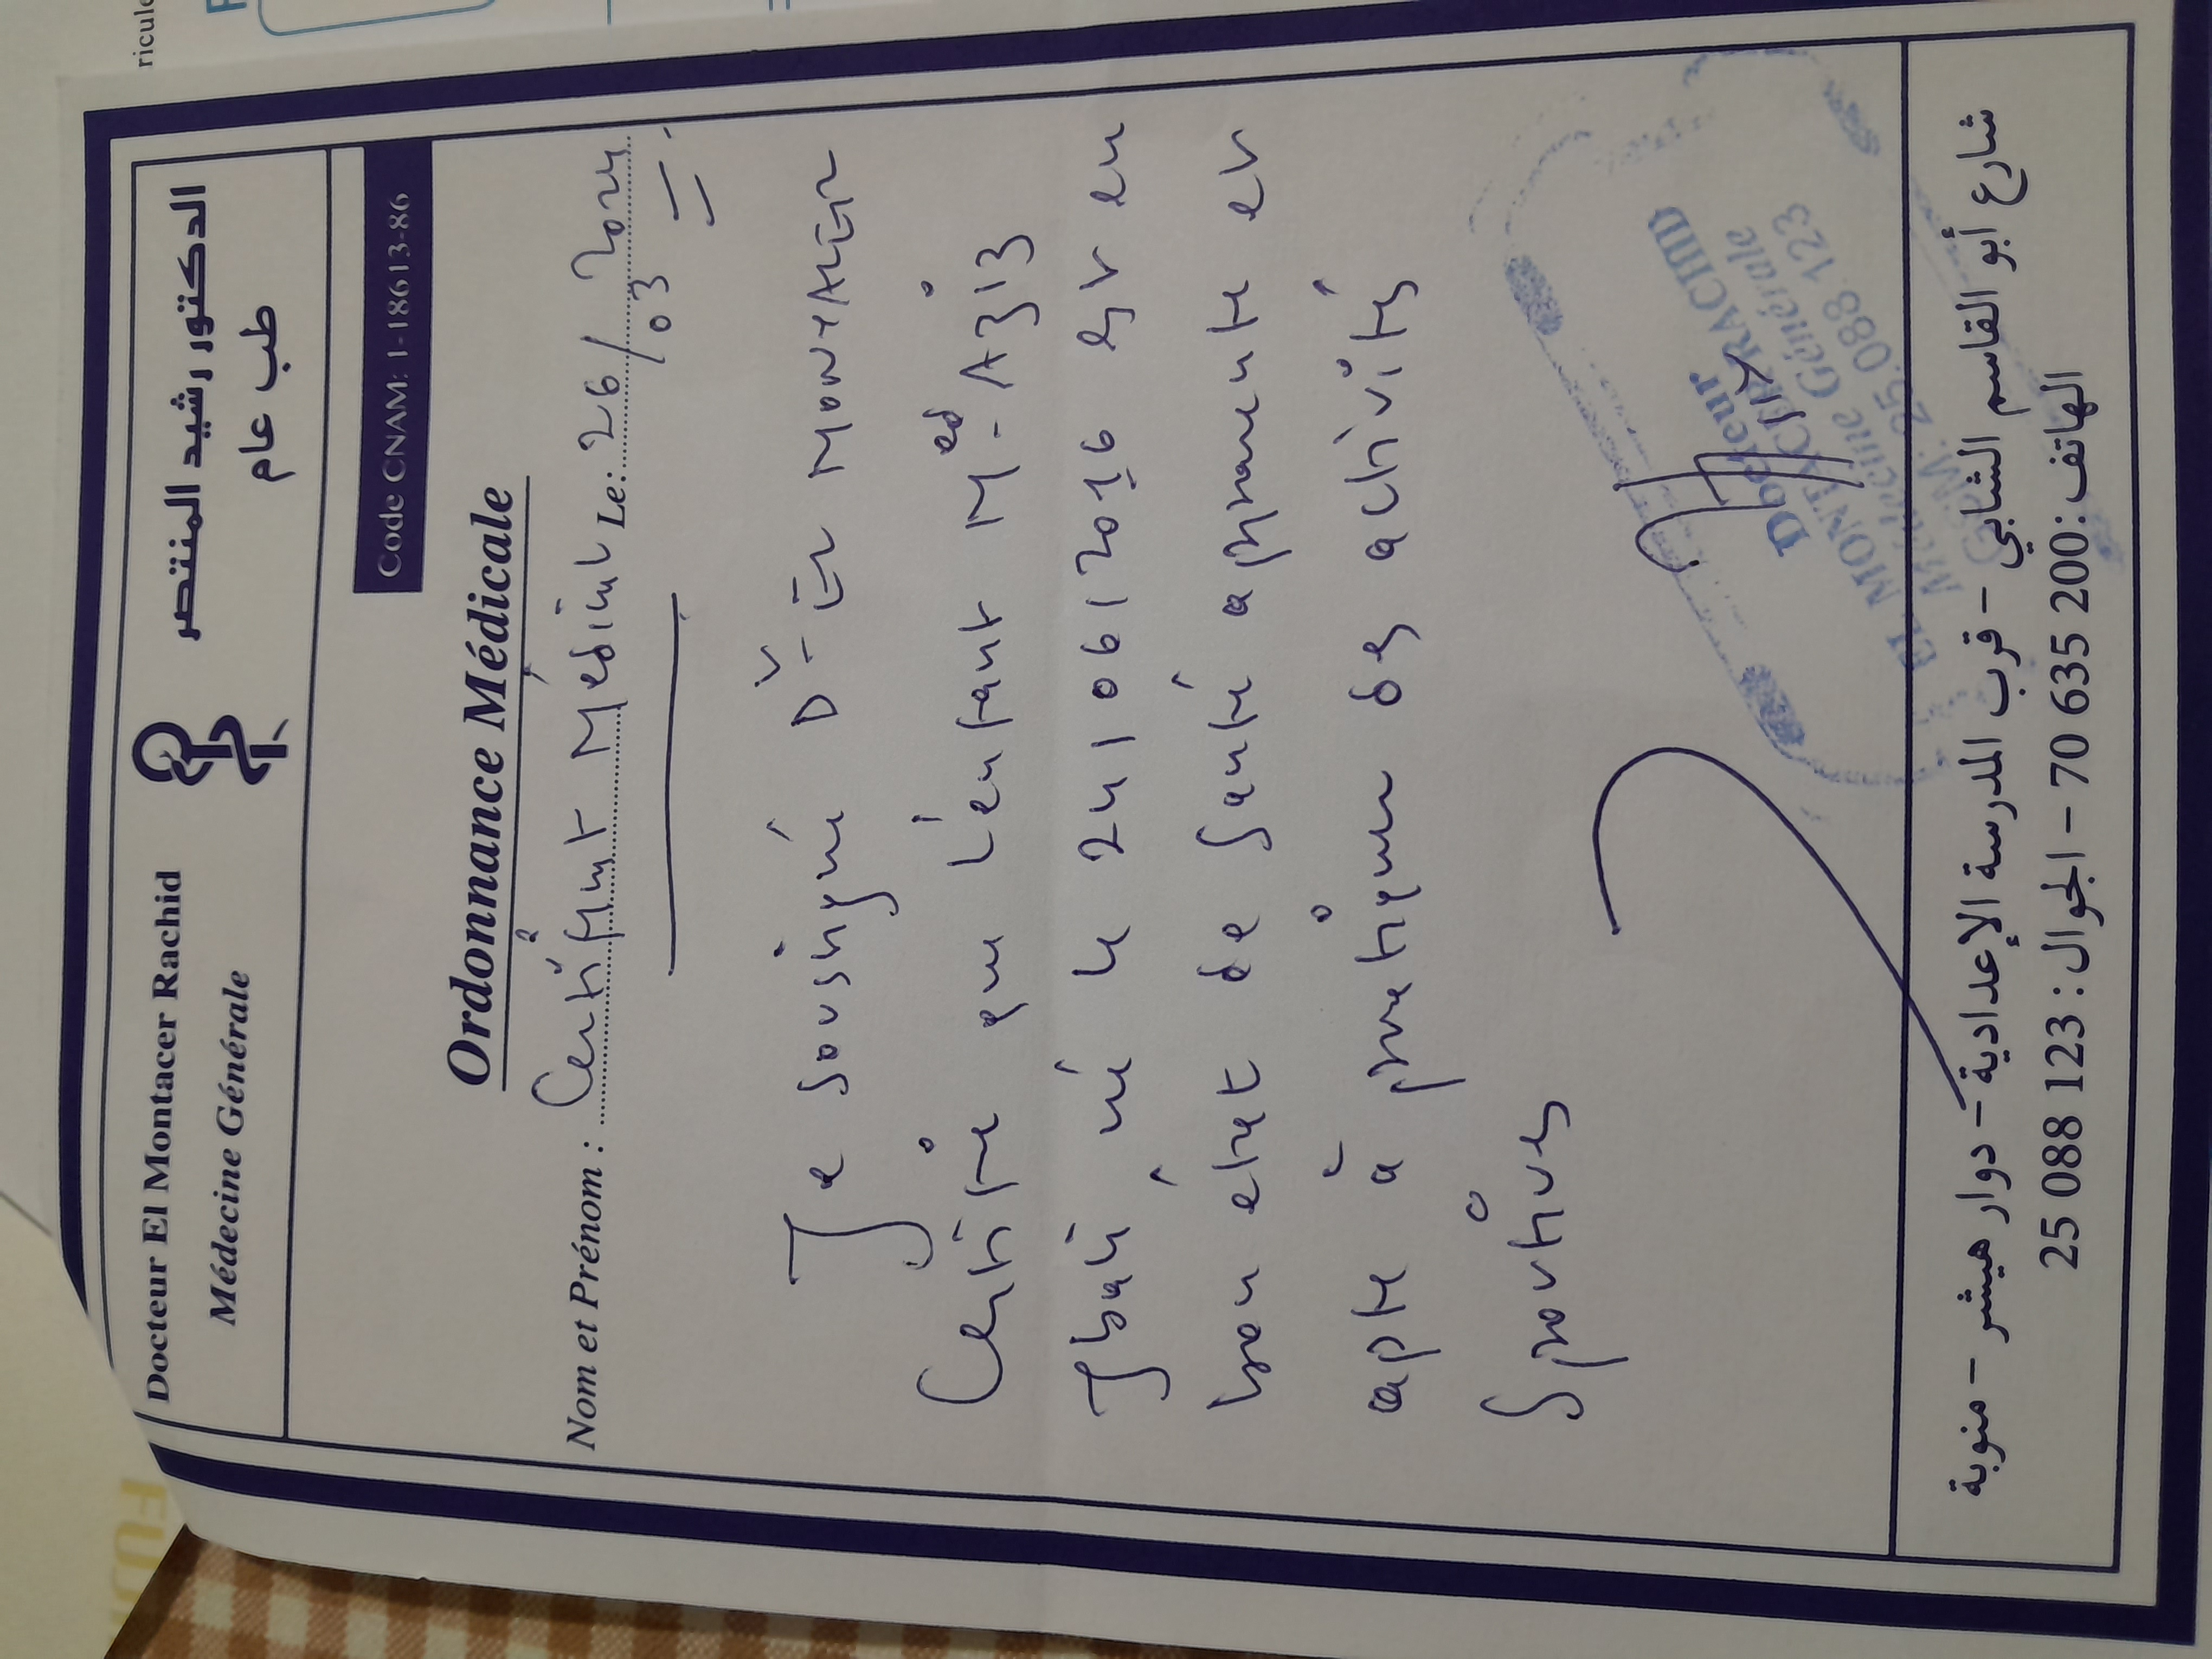 ricule
Docteur El Montacer Rachid
Médecine Générale
الدكتور رشيد المنتصر
طب عام
Code CNAM: 1-18613-86
Ordonnance Médicale
Nom et Prénom : Certificat Médical Le: 26/03
Je soussigné Dr
Certifie que l'enfant Med Aziz
né le 24/06/2016 est en
bon état de santé apparente et
apte à pratiquer des activités
Sportives
Docteur
EL MONTACER RACHID
Médecine Générale
25.088.123
شارع أبو القاسم الشابي - قرب المدرسة الإعدادية - دوار هيشر - منوبة
الهاتف: 200 635 70 - الجوال: 123 088 25